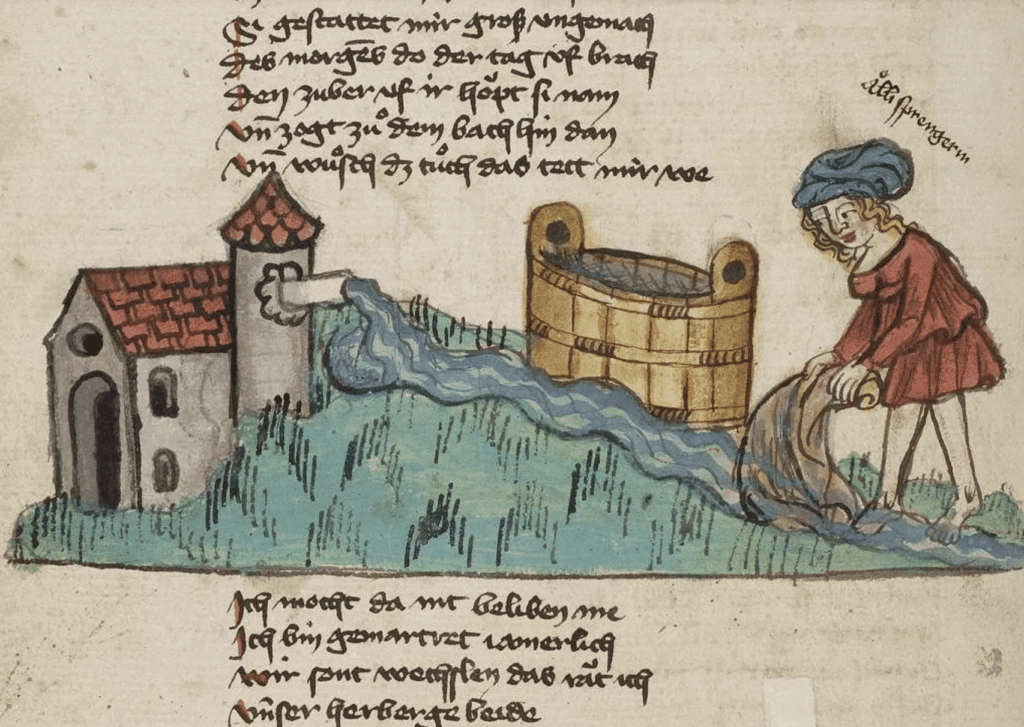 Si gestattet mir groß vngemach
Des morgēs do der tag vf brach
Den zuber vf ir hoͤpt si nam
Vn̄ zogt zuͦ dem bach hin dan
Vn̄ wuͦsch dz tuͦch das tett mir we
Ich mocht da nit beliben me
Ich bin gemartret iamerlich
Wir sont wechslen das rat ich
Vn̄ser herberge beide